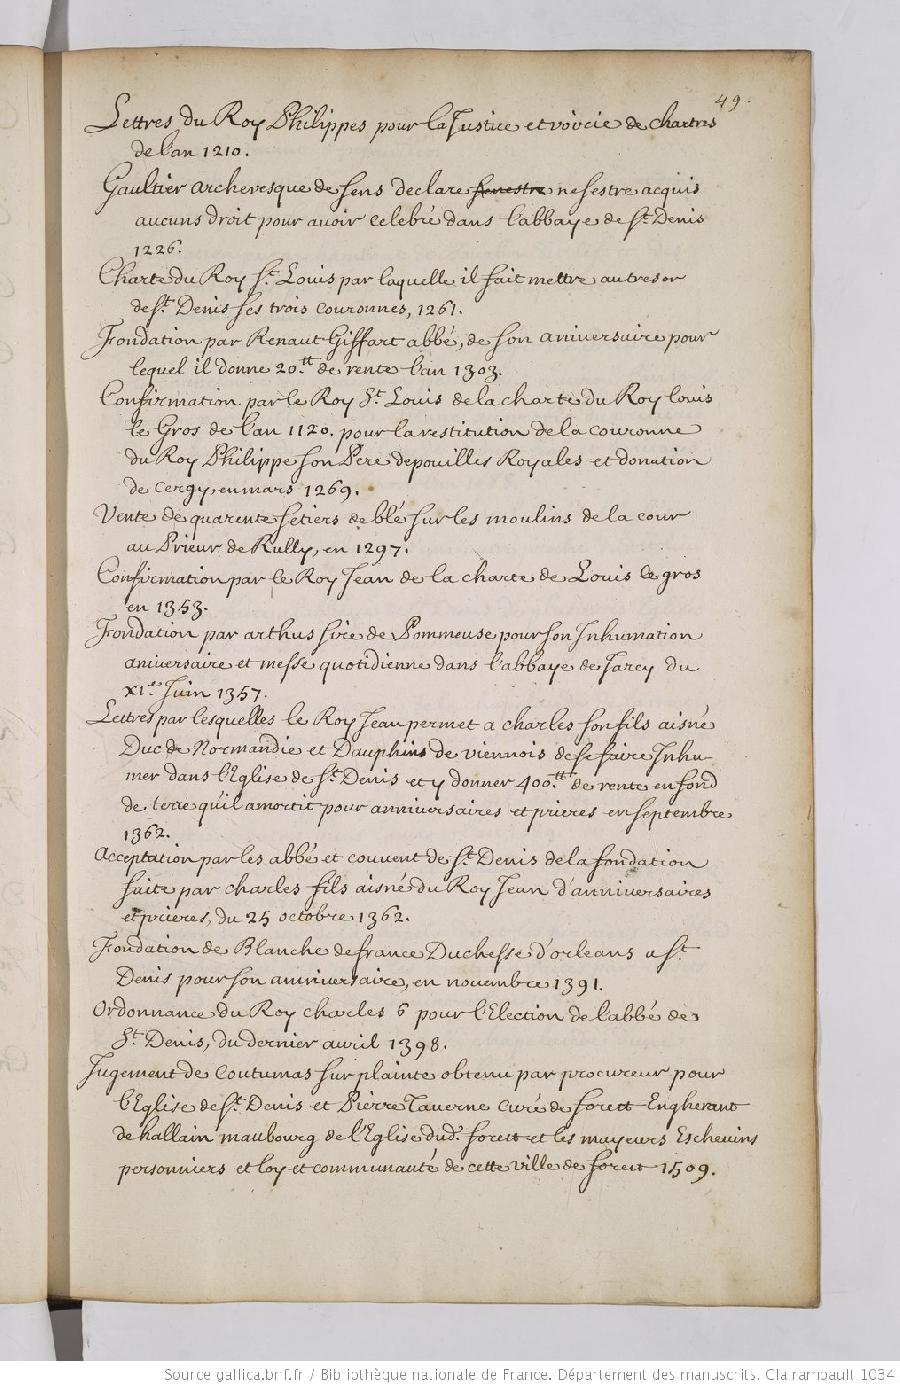 49.
Lettres du Roy Philippes pour la Justice et voirie de chartres
de l'an 1210.
Gaultier archevesque de sens declare senestre ne sestre acquis
aucuns droit pour avoir celebré dans l'abbaye de St. Denis
1226.
Charte du Roy St. Louis par laquelle il fait mettre au tresor
de St. Denis ses trois couronnes, 1261.
Fondation par Renaut Giffart abbé, de son aniversaire pour
lequel il donne 20.tt de rente l'an 1303.
Confirmation par le Roy St. Louis de la charte du Roy louis
le Gros de l'an 1120. pour la restitution de la couronne
du Roy Philippe son Pere depouilles Royales et donation
de Cergy, en mars 1269.
Vente de quarente setiers de blé sur les moulins de la cour
au Prieur de Rully, en 1297.
Confirmation par le Roy Jean de la charte de Louis le gros
en 1353.
Fondation par arthus sire de Pommeuse pour son Inhumation
aniversaire et messe quotidienne dans l'abbaye de Jarcy du
XIe. Juin 1357.
Lettres par lesquelles le Roy Jean permet a charles son fils aisné
Duc de Normandie et Dauphins de viennois de se faire Inhu-
mer dans l'Eglise de St. Denis et y donner 400.tt de rente en fond
de terre qu'il amortit pour anniversaires et prieres en septembre
1362.
Acceptation par les abbé et couvent de St. Denis de la fondation
faite par charles fils aisné du Roy Jean d'anniversaires
et prieres, du 25 octobre 1362.
Fondation de Blanche de france Duchesse d'orleans a St.
Denis pour son anniversaire, en novembre 1391.
Ordonnance du Roy charles 6 pour l'Election de l'abbé de
St. Denis, du dernier avril 1398.
Jugement de Coutumas sur plainte obtenu par procureur pour
l'Eglise de St. Denis et Pierre Taverne curé de forest Engherant
de hallain maubourg de l'Eglise dud. forest et les mayeurs Eschevins
personniers et loy et communauté de cette ville de forest 1509.
Source gallica.bnf.fr / Bibliothèque nationale de France. Département des manuscrits. Clairambault 1034